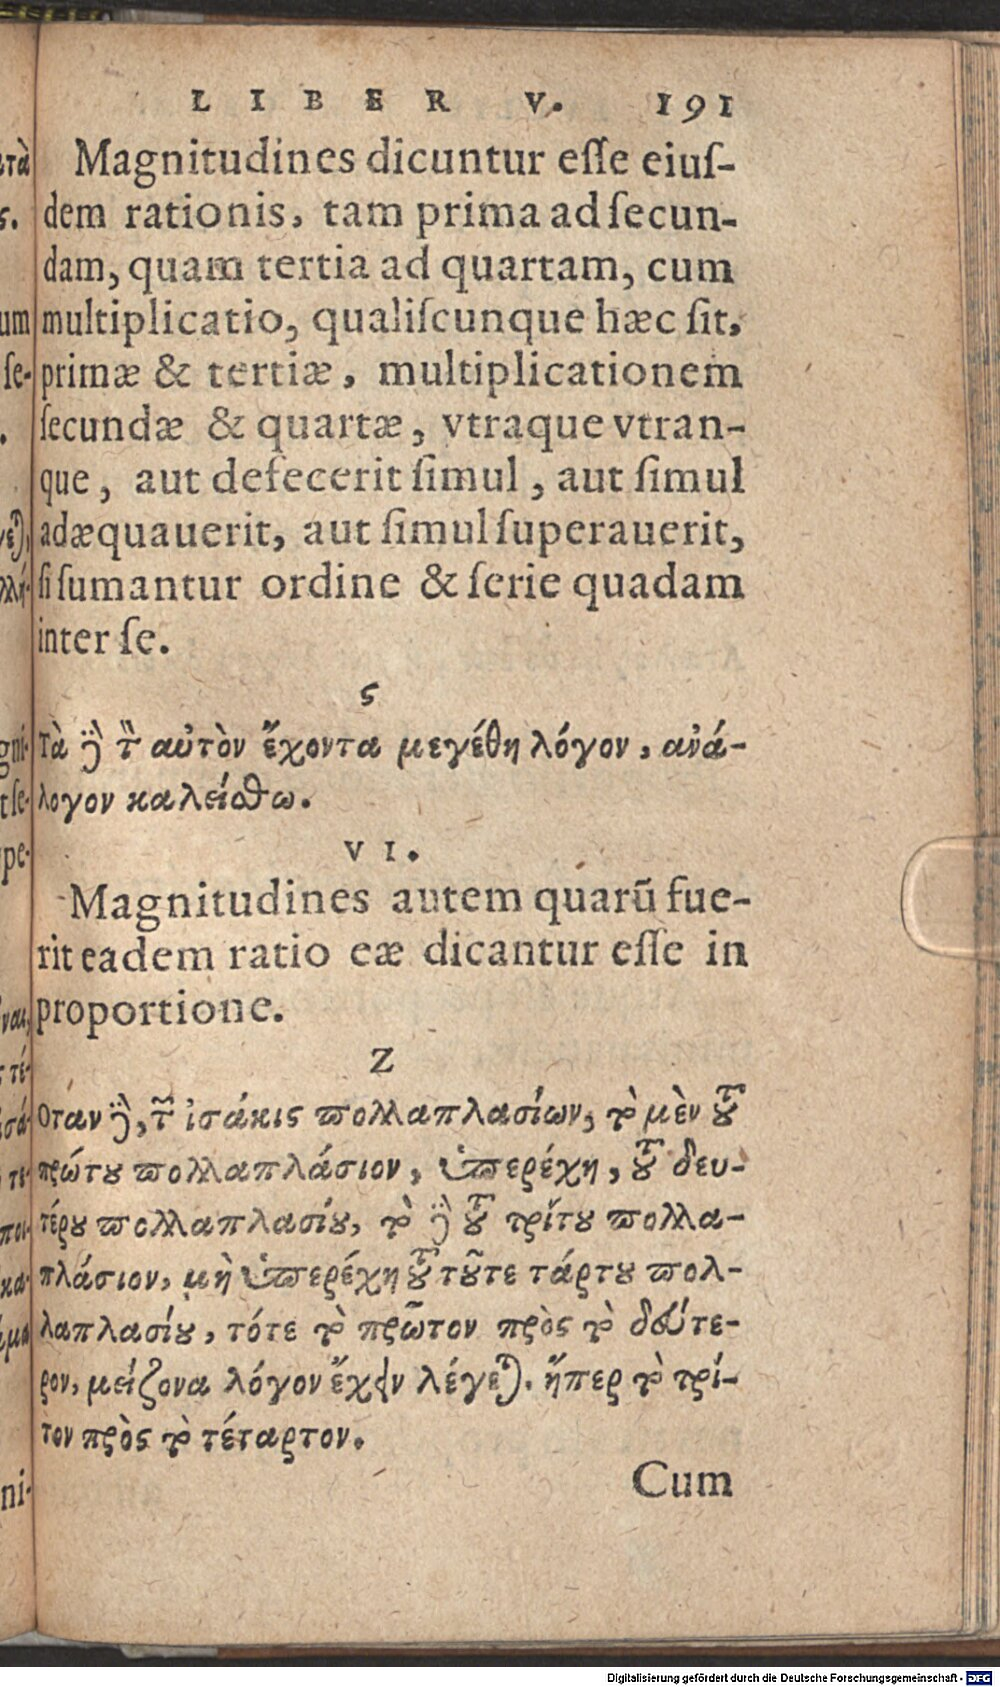 LIBER V. 191
Magnitudines dicuntur esse eius-
dem rationis, tam prima ad secun-
dam, quam tertia ad quartam, cum
multiplicatio, qualiscunque hæc sit,
primæ & tertiæ, multiplicationem
secundæ & quartæ, vtraque vtran-
que, aut defecerit simul, aut simul
adæquauerit, aut simul superauerit,
si sumantur ordine & serie quadam
inter se.
ϛ
Τὰ δὲ τὸν αὐτὸν ἔχοντα μεγέθη λόγον, ἀνά-
λογον καλείσθω.
VI.
Magnitudines autem quarũ fue-
rit eadem ratio eæ dicantur esse in
proportione.
Z
Οταν δὲ, τῶν ἰσάκις πολλαπλασίων, τὸ μὲν τοῦ
πρώτου πολλαπλάσιον, ὑπερέχη, τοῦ δευ-
τέρου πολλαπλασίου, τὸ δὲ τοῦ τρίτου πολλα-
πλάσιον, μὴ ὑπερέχη τοῦ τοῦτε τάρτου πολ-
λαπλασίου, τότε τὸ πρῶτον πρὸς τὸ δεύτε-
ρον, μείζονα λόγον ἔχειν λέγεται. ἤπερ τὸ τρί-
τον πρὸς τὸ τέταρτον.
Cum
Digitalisierung gefördert durch die Deutsche Forschungsgemeinschaft - DFG